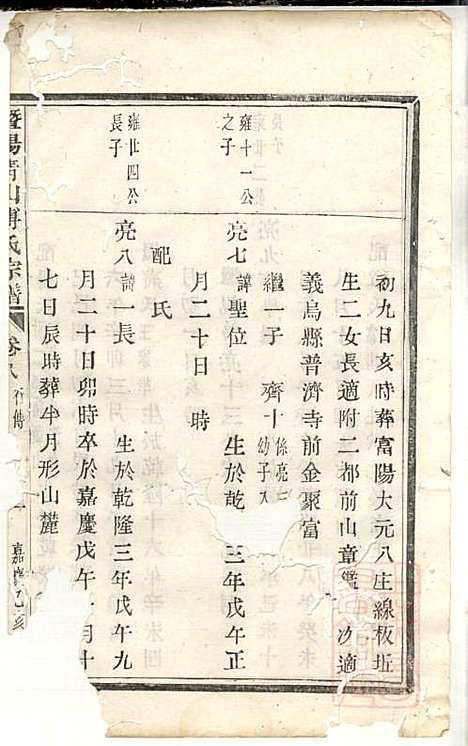 初九日亥時葬富陽大元八庄線板坵
生二女長適附二都前山章鑑 次適
義烏縣普濟寺前金聚富
繼一子 齊十 係亮二 幼子入
雍十一公之子
亮七 諱聖位 生於乾 三年戊午正
月二十日 時
配 氏
雍廿四公長子
亮八 諱一長 生於乾隆三年戊午九
月二十日卯時卒於嘉慶戊午 月十
七日辰時葬半月形山麓
暨陽 山傅氏宗譜 卷 行傳 嘉慶乙亥